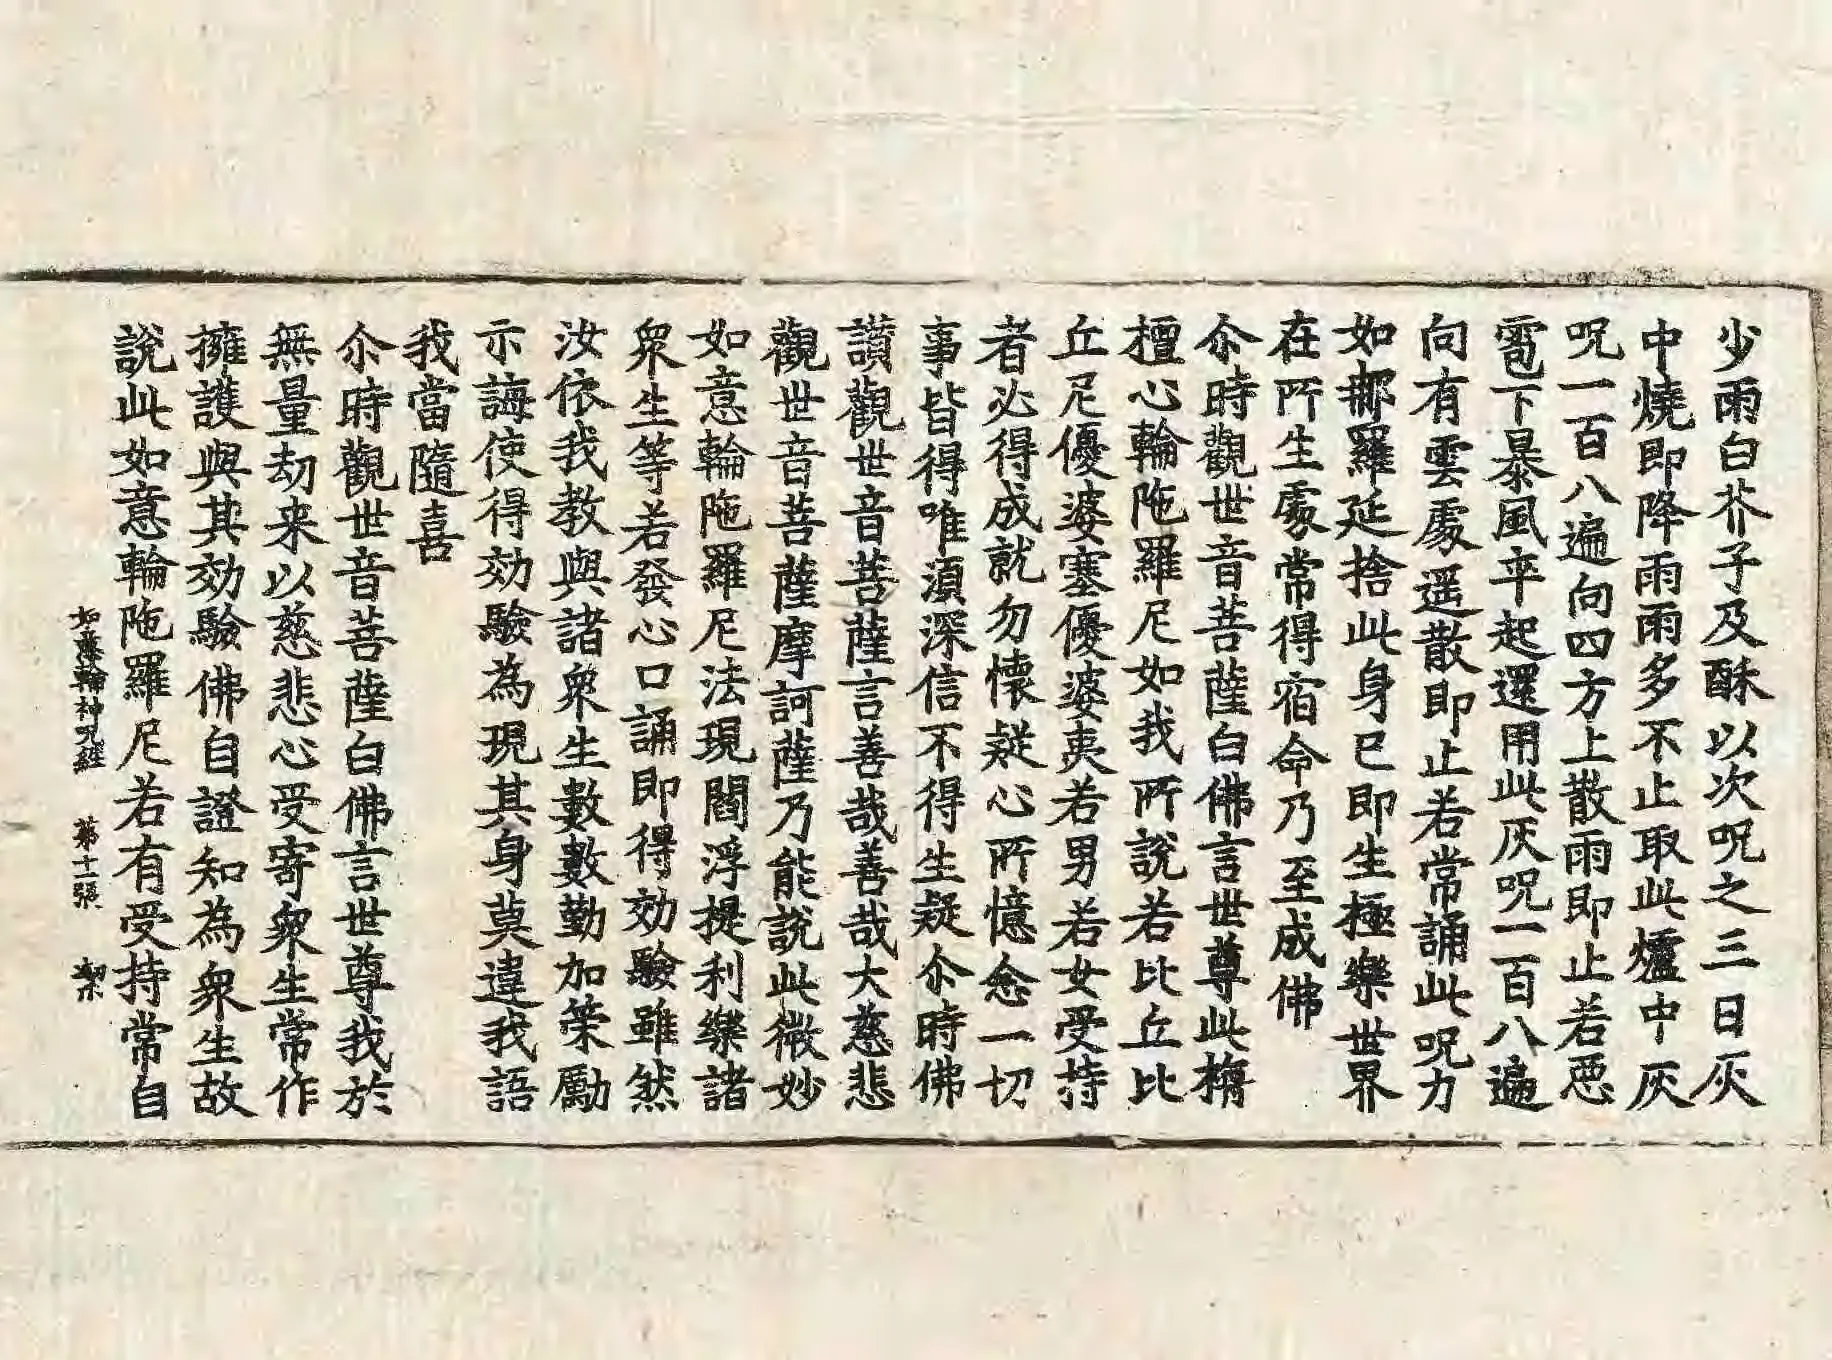 少雨白芥子及酥以次呪之三日灰
中燒即降雨雨多不止取此爐中灰
呪一百八遍向四方上散雨即止若惡
雹下暴風卒起還用此灰呪一百八遍
向有雲處遥散即止若常誦此呪力
如那羅延捨此身已即生極樂世界
在所生處常得宿命乃至成佛
尒時觀世音菩薩白佛言世尊此栴
檀心輪陁羅尼如我所說若比丘比
丘尼優婆塞優婆夷若男若女受持
者必得成就勿懷疑心所憶念一切
事皆得唯湏深信不得生疑尒時佛
讃觀世音菩薩言善哉善哉大慈悲
觀世音菩薩摩訶薩乃能說此微妙
如意輪陁羅尼法現閻浮提利樂諸
衆生等若發心口誦即得効驗雖然
汝依我教與諸衆生數數勤加策勵
示誨使得効驗為現其身莫違我語
我當隨喜
尒時觀世音菩薩白佛言世尊我於
無量劫来以慈悲心受寄衆生常作
擁護與其効驗佛自證知為衆生故
說此如意輪陁羅尼若有受持常自
如意輪神呪經 苐十一張